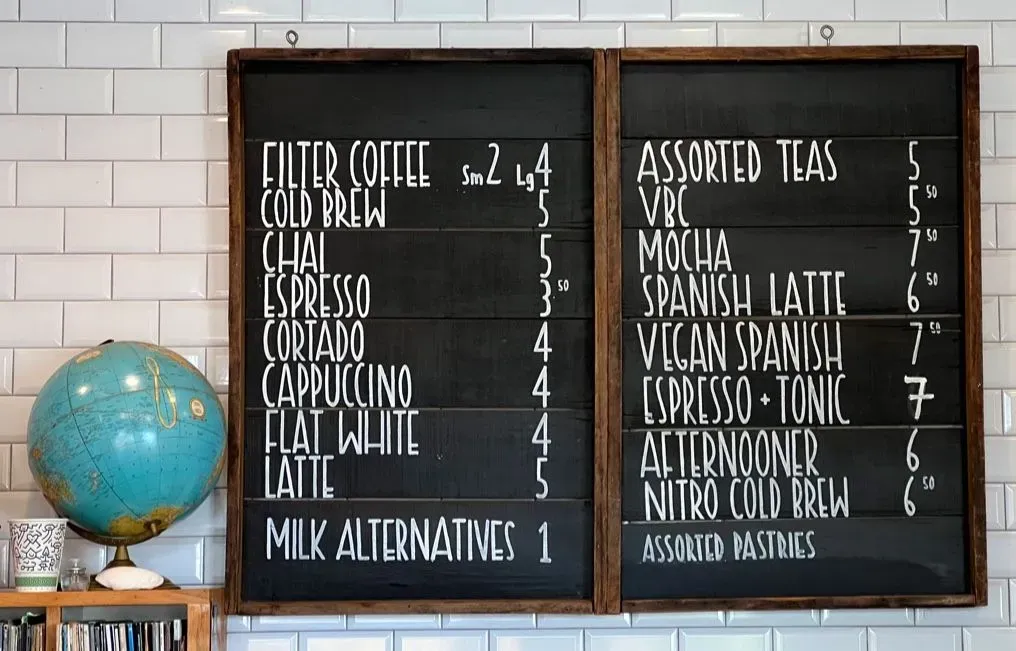 FILTER COFFEE Sm 2 Lg 4
COLD BREW 5
CHAI 5
ESPRESSO 3 50
CORTADO 4
CAPPUCCINO 4
FLAT WHITE 4
LATTE 5
MILK ALTERNATIVES 1
ASSORTED TEAS 5
VBC 5 50
MOCHA 7 50
SPANISH LATTE 6 50
VEGAN SPANISH 7 50
ESPRESSO + TONIC 7
AFTERNOONER 6
NITRO COLD BREW 6 50
ASSORTED PASTRIES